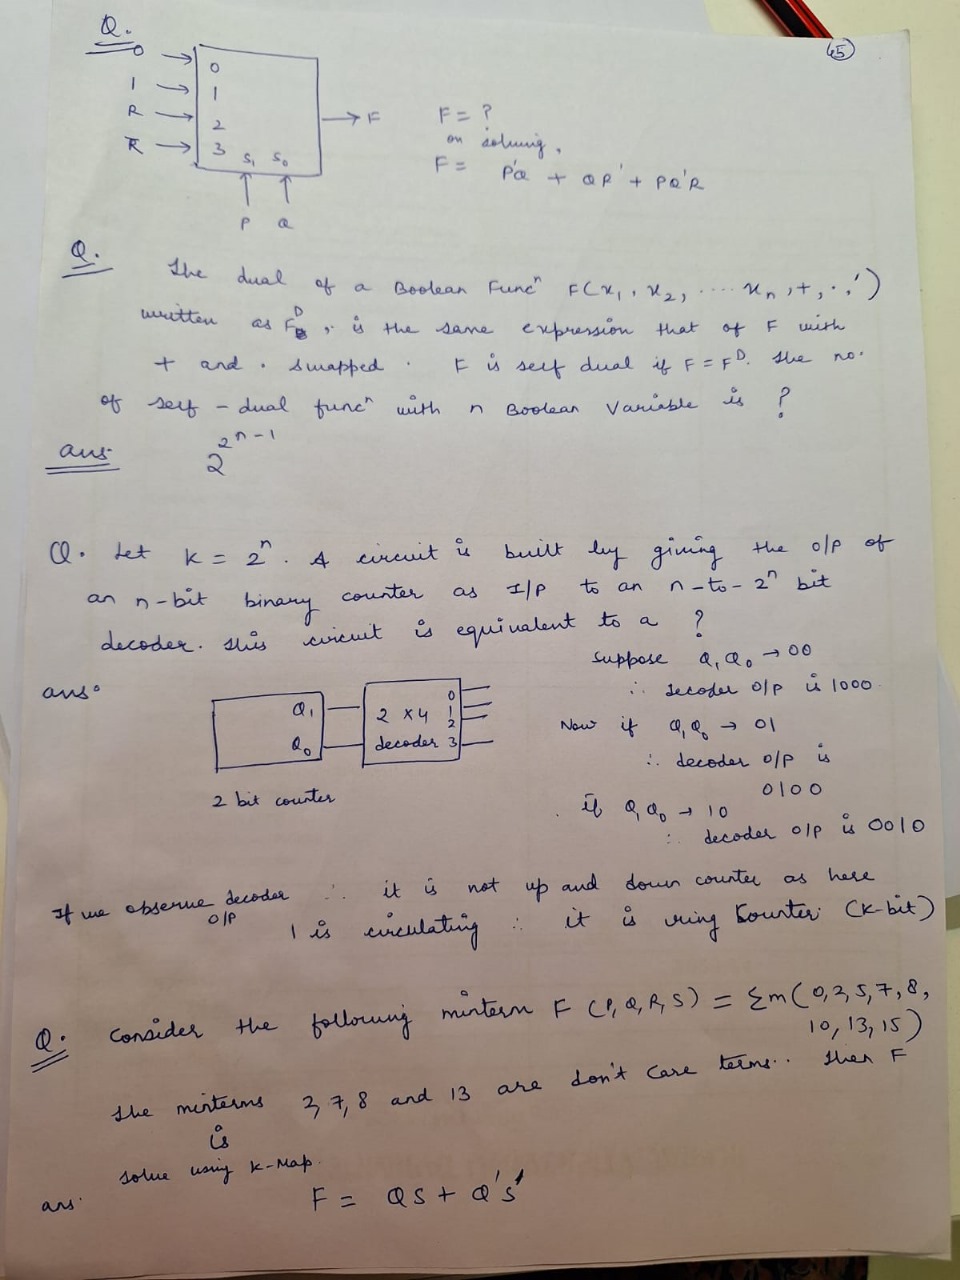 65
Q.
0 → 0
1 → 1 → F F = ?
R → 2 on solving,
R̅ → 3 S₁ S₀ F = P'Q + QR' + PQ'R
P Q
Q. The dual of a Boolean Funcⁿ F(x₁, x₂, .... xₙ, +, ., ')
written as Fᴰ, is the same expression that of F with
+ and . swapped. F is self dual if F = Fᴰ. The no.
of self-dual funcⁿ with n Boolean Variable is ?
ans. 2^2^n-1
Q. Let K = 2ⁿ. A circuit is built by giving the O/P of
an n-bit binary counter as I/P to an n-to-2ⁿ bit
decoder. This circuit is equivalent to a ?
ans.
Q₁ 2 x 4 0
1
2
Q₀ decoder 3
2 bit counter
Suppose Q₁Q₀ → 00
∴ decoder O/P is 1000
Now if Q₁Q₀ → 01
∴ decoder O/P is
0100
if Q₁Q₀ → 10
∴ decoder O/P is 0010
If we observe decoder O/P ∴ it is not up and down counter as here
1 is circulating ∴ it is ring Counter. (K-bit)
Q. Consider the following minterm F (P, Q, R, S) = Σm(0, 2, 5, 7, 8,
10, 13, 15)
The minterms 2, 7, 8 and 13 are don't care terms.. Then F
is
solve using K-Map.
ans. F = QS + Q'S'